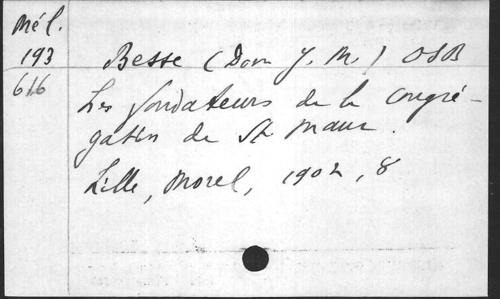 Mél.
193
616
Besse (Dom J. M.) OSB
Les fondateurs de la Congré-
gation de St Maur.
Lille, Morel, 1902, 8